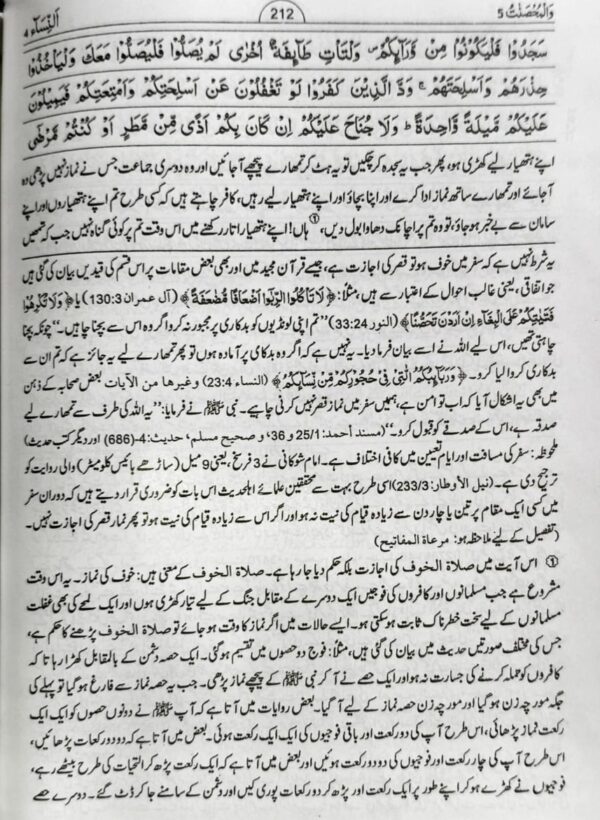 وَالْمُحْصَنٰتُ 5 212 اَلنِّسَآء 4
سَجَدُوْا فَلْيَكُوْنُوْا مِنْ وَّرَآىِٕكُمْ ۪ وَلْتَاْتِ طَآىِٕفَةٌ اُخْرٰى لَمْ يُصَلُّوْا فَلْيُصَلُّوْا مَعَكَ وَلْيَاْخُذُوْا
حِذْرَهُمْ وَاَسْلِحَتَهُمْ ۚ وَدَّ الَّذِيْنَ كَفَرُوْا لَوْ تَغْفُلُوْنَ عَنْ اَسْلِحَتِكُمْ وَاَمْتِعَتِكُمْ فَيَمِيْلُوْنَ
عَلَيْكُمْ مَّيْلَةً وَّاحِدَةً ؕ وَلَا جُنَاحَ عَلَيْكُمْ اِنْ كَانَ بِكُمْ اَذًى مِّنْ مَّطَرٍ اَوْ كُنْتُمْ مَّرْضٰٓى
اپنے ہتھیار لیے کھڑی ہو، پھر جب یہ سجدہ کر چکیں تو یہ ہٹ کر تمھارے پیچھے آ جائیں اور وہ دوسری جماعت جس نے نماز نہیں پڑھی وہ
آ جائے اور تمھارے ساتھ نماز ادا کرے اور اپنا بچاؤ اور اپنے ہتھیار لیے رہیں، کافر چاہتے ہیں کہ کسی طرح تم اپنے ہتھیاروں اور اپنے
سامان سے بے خبر ہو جاؤ، تو وہ تم پر اچانک دھاوا بول دیں، ① ہاں! اپنے ہتھیار اتار رکھنے میں اس وقت تم پر کوئی گناہ نہیں جب کہ تمھیں
یہ شرط نہیں ہے کہ سفر میں خوف ہو تو قصر کی اجازت ہے، جیسے قرآن مجید میں اور بھی بعض مقامات پر اس قسم کی قیدیں بیان کی گئی ہیں
جو اتفاقی، یعنی غالب احوال کے اعتبار سے ہیں، مثلاً: ﴿لَا تَاْكُلُوا الرِّبٰۤوا اَضْعَافًا مُّضٰعَفَةً﴾ (آل عمران 130:3) یا ﴿وَلَا تُكْرِهُوْا
فَتَيٰتِكُمْ عَلَى الْبِغَآءِ اِنْ اَرَدْنَ تَحَصُّنًا﴾ (النور 33:24) ”تم اپنی لونڈیوں کو بدکاری پر مجبور نہ کرو اگر وہ اس سے بچنا چاہیں۔“ چونکہ بچنا
چاہتی تھیں، اس لیے اللہ نے اسے بیان فرما دیا۔ یہ نہیں ہے کہ اگر وہ بدکاری پر آمادہ ہوں تو پھر تمھارے لیے یہ جائز ہے کہ تم ان سے
بدکاری کروا لیا کرو۔ ﴿وَرَبَآىِٕبُكُمُ الّٰتِيْ فِيْ حُجُوْرِكُمْ مِّنْ نِّسَآىِٕكُمُ﴾ (النساء 23:4) وغیرها من الآیات بعض صحابہ کے ذہن
میں بھی یہ اشکال آیا کہ اب تو امن ہے، ہمیں سفر میں نماز قصر نہیں کرنی چاہیے۔ نبی ﷺ نے فرمایا: ”یہ اللہ کی طرف سے تمھارے لیے
صدقہ ہے، اس کے صدقے کو قبول کرو۔“ (مسند أحمد: 25/1 و 36، و صحیح مسلم، حدیث: 4-(686) اور دیگر کتب حدیث)
ملحوظہ: سفر کی مسافت اور ایام تعیین میں کافی اختلاف ہے۔ امام شوکانی نے 3 فرسخ، یعنی 9 میل (ساڑھے بائیس کلومیٹر) والی روایت کو
ترجیح دی ہے۔ (نیل الأوطار: 233/3) اسی طرح بہت سے محققین علمائے اہلحدیث اس بات کو ضروری قرار دیتے ہیں کہ دوران سفر
میں کسی ایک مقام پر تین یا چار دن سے زیادہ قیام کی نیت نہ ہو اور اگر اس سے زیادہ قیام کی نیت ہو تو پھر نماز قصر کی اجازت نہیں۔
(تفصیل کے لیے ملاحظہ ہو: مرعاة المفاتیح)
① اس آیت میں صلاة الخوف کی اجازت بلکہ حکم دیا جا رہا ہے۔ صلاة الخوف کے معنی ہیں: خوف کی نماز۔ یہ اس وقت
مشروع ہے جب مسلمانوں اور کافروں کی فوجیں ایک دوسرے کے مقابل جنگ کے لیے تیار کھڑی ہوں اور ایک لمحے کی بھی غفلت
مسلمانوں کے لیے سخت خطرناک ثابت ہو سکتی ہو۔ ایسے حالات میں اگر نماز کا وقت ہو جائے تو صلاة الخوف پڑھنے کا حکم ہے،
جس کی مختلف صورتیں حدیث میں بیان کی گئی ہیں، مثلاً: فوج دو حصوں میں تقسیم ہو گئی۔ ایک حصہ دشمن کے بالمقابل کھڑا رہا تا کہ
کافروں کو حملہ کرنے کی جسارت نہ ہو اور ایک حصے نے آ کر نبی ﷺ کے پیچھے نماز پڑھی۔ جب یہ حصہ نماز سے فارغ ہو گیا تو پہلے کی
جگہ مورچہ زن ہو گیا اور مورچہ زن حصہ نماز کے لیے آ گیا۔ بعض روایات میں آتا ہے کہ آپ ﷺ نے دونوں حصوں کو ایک ایک
رکعت نماز پڑھائی، اس طرح آپ کی دو رکعت اور باقی فوجیوں کی ایک ایک رکعت ہوئی۔ بعض میں آتا ہے کہ دو دو رکعات پڑھائیں،
اس طرح آپ کی چار رکعت اور فوجیوں کی دو دو رکعت ہوئیں اور بعض میں آتا ہے کہ ایک رکعت پڑھ کر التحیات کی طرح بیٹھے رہے،
فوجیوں نے کھڑے ہو کر اپنے طور پر ایک رکعت اور پڑھ کر دو رکعات پوری کیں اور دشمن کے سامنے جا کر ڈٹ گئے۔ دوسرے حصے